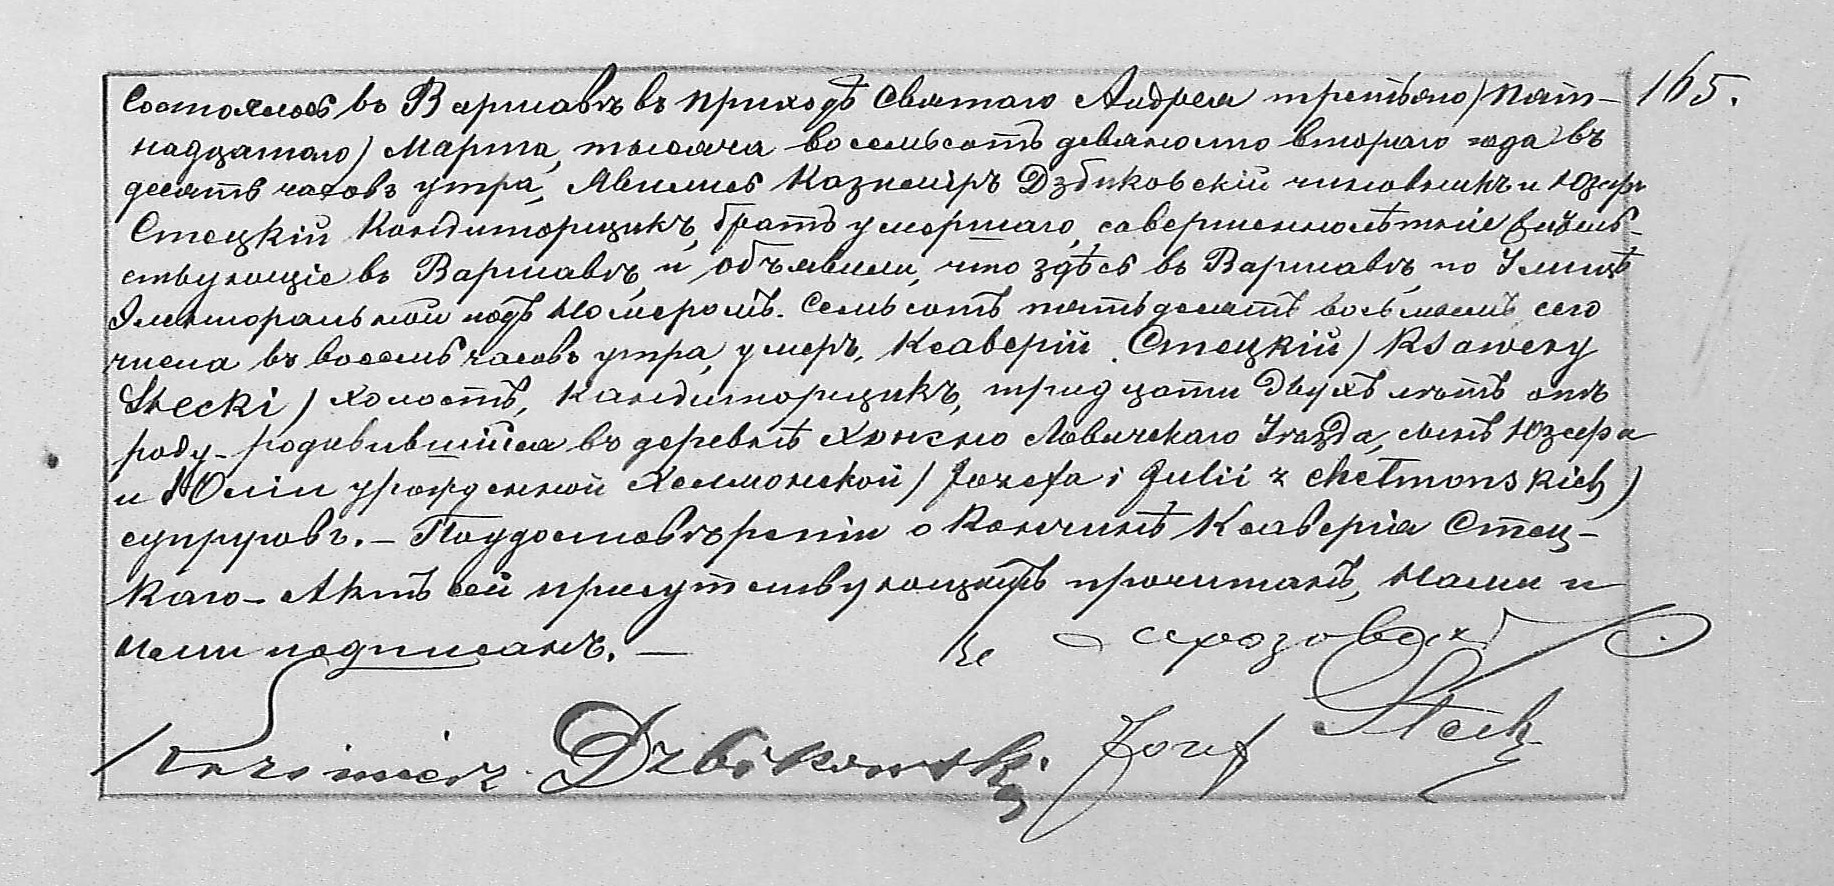 165.
Состоялось въ Варшавѣ въ приходѣ Святаго Андрея третьяго / пят-
надцатаго) Марта, тысяча восемьсотъ девяносто втораго года въ
десять часовъ утра, Явились Казимиръ Дзбиковскій чиновникъ и Юзефъ
Стецкій Кандиторщикъ, братъ умершаго, совершеннолѣтніе жительст-
ствующіе въ Варшавѣ, и объявили, что здѣсь въ Варшавѣ, по Улицѣ
Электоральной подъ номеромъ. Семьсотъ пятьдесятъ восьмымъ сего
числа въ восемь часовъ утра, умеръ, Ксаверій Стецкій / Ksawery
Stecki) холостъ, кандиторщикъ, тридцати двухъ лѣтъ отъ
роду - родившійся въ деревнѣ Ловичскаго Уѣзда, сынъ Юзефа
и Юліи урожденной Хелмонской / Józefa i Julii z Chełmonskich)
супруговъ. - По удостовѣреніи о Кончинѣ Ксаверія Стец-
каго - Актъ сей присутствующимъ прочитанъ, Нами и
ими подписанъ. —
Kazimierz Dzbikowski. Józef Stecki